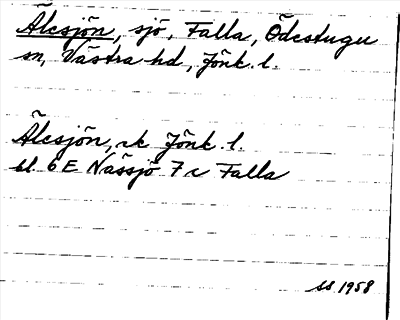 Älesjön, sjö, Falla, Ödestugu
sn, Västra hd, Jönk. l.
Älesjön, rk Jönk. l.
bl. 6E Nässjö 7c Falla
SS 1958